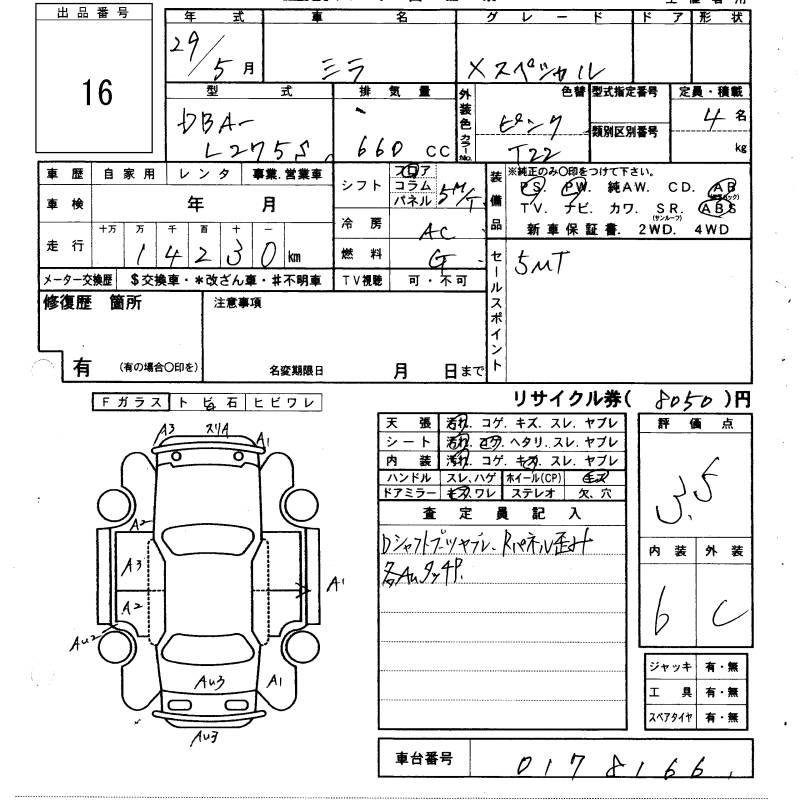 出品番号
16
年 式 車 名 グレード ドア 形状
29/5月 ミラ Xスペシャル
型 式 排気量 外装色 カラーNo. 色替 型式指定番号 定員・積載
DBA- L275S 660 CC ピンク T22 類別区別番号 4 名 kg
車歴 自家用 レンタ 事業.営業車
車検 年 月
走行 十万 万 千 百 十 一
1 4 2 3 0 km
メーター交換歴 $交換車・*改ざん車・#不明車
シフト フロア コラム パネル 5M/T
冷房 AC
燃料 G
TV視聴 可・不可
装備品
※純正のみ〇印をつけて下さい。
PS. PW. 純AW. CD. AB
TV. ナビ. カワ. SR. (サンルーフ) ABS
新車保証書. 2WD. 4WD
セールスポイント
5MT
修復歴 箇所
有 (有の場合〇印を)
注意事項
名変期限日 月 日まで
リサイクル券( 8050 )円
Fガラス トビ石 ヒビワレ
A3 スリA A1
A2
A3
A2
A1
Au2
Au3 A1
Au3
天張 汚れ. コゲ. キズ. スレ. ヤブレ
シート 汚れ. コゲ. ヘタリ. スレ. ヤブレ
内装 汚れ. コゲ. キズ. スレ. ヤブレ
ハンドル スレ、ハゲ ホイール(CP) キズ
ドアミラー キズ.ワレ ステレオ 欠、穴
査定員記入
Dシャフトブーツヤブレ、Rパネル歪み
各AuタッチP.
評価点
3.5
内装 外装
6 C
ジャッキ 有・無
工具 有・無
スペアタイヤ 有・無
車台番号 0178166